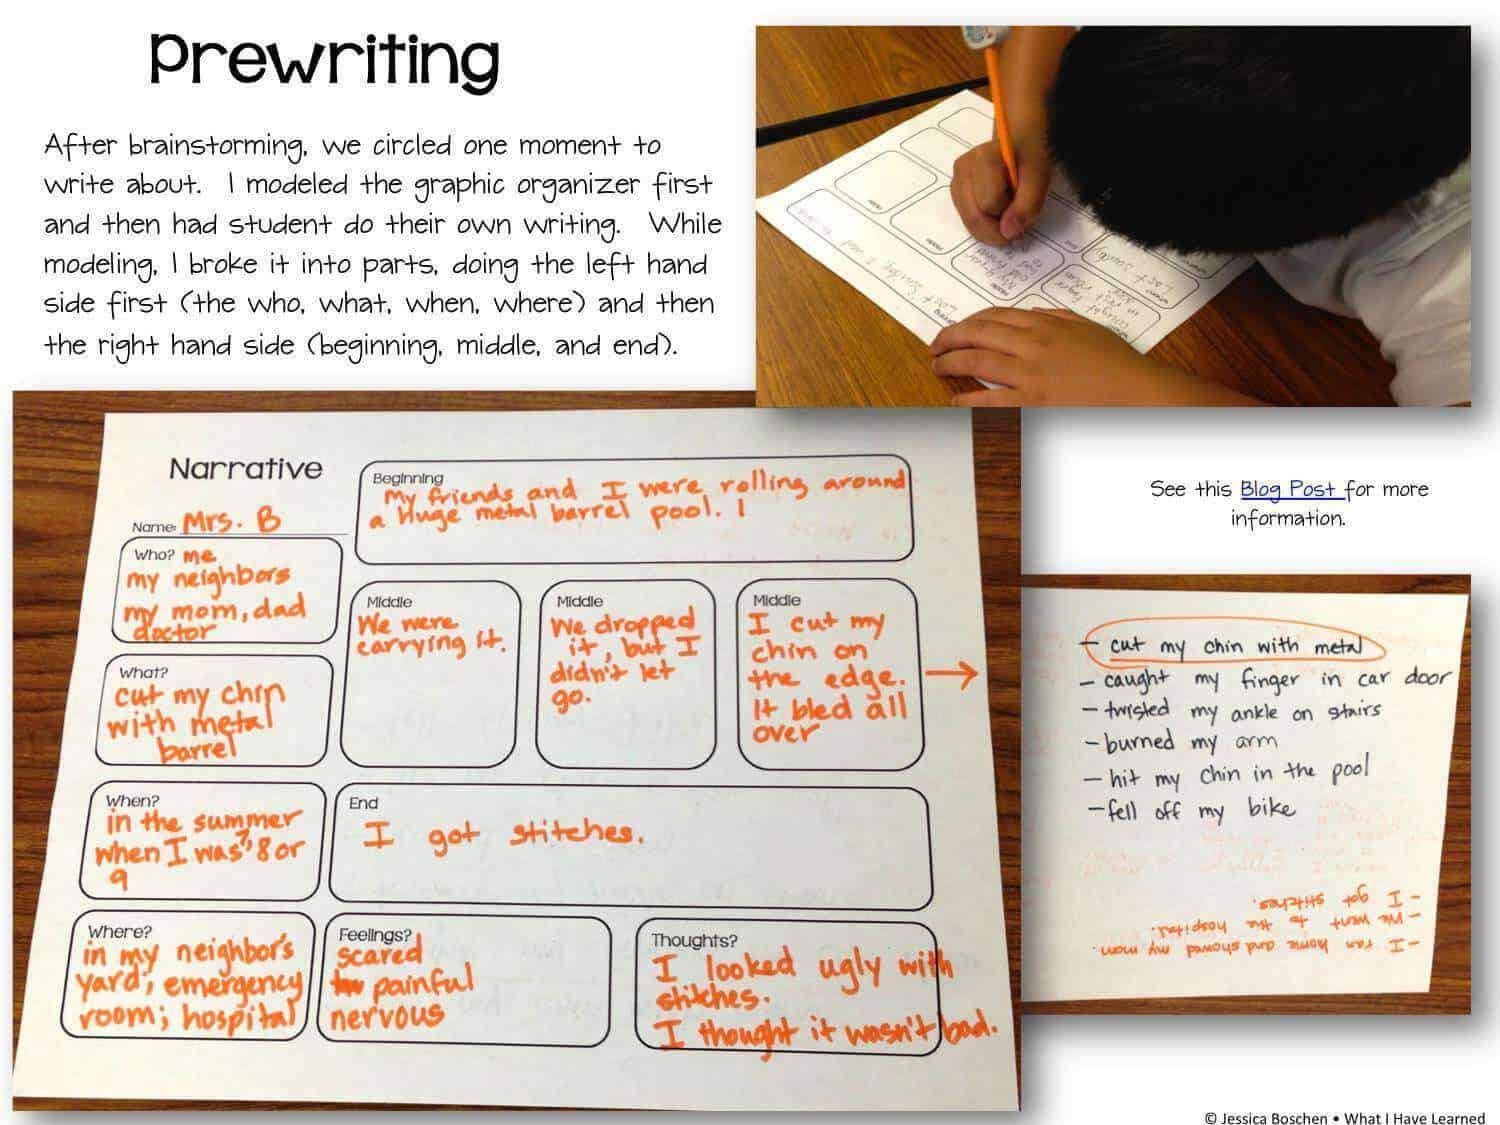 Prewriting
After brainstorming, we circled one moment to
write about. I modeled the graphic organizer first
and then had student do their own writing. While
modeling, I broke it into parts, doing the left hand
side first (the who, what, when, where) and then
the right hand side (beginning, middle, and end).
See this Blog Post for more
information.
Narrative
Name: Mrs. B
Who? me
my neighbors
my mom, dad
doctor
What?
cut my chin
with metal
barrel
When?
in the summer
when I was 7, 8 or
9
Where?
in my neighbor's
yard; emergency
room; hospital
Beginning
My friends and I were rolling around
a huge metal barrel pool. I
Middle
We were
carrying it.
Middle
We dropped
it, but I
didn't let
go.
Middle
I cut my
chin on
the edge.
It bled all
over
End
I got stitches.
Feelings?
scared
painful
nervous
Thoughts?
I looked ugly with
stitches.
I thought it wasn't bad.
- cut my chin with metal
- caught my finger in car door
- twisted my ankle on stairs
- burned my arm
- hit my chin in the pool
- fell off my bike
- I ran home and showed my mom
- We went to the hospital.
- I got stitches.
© Jessica Boschen • What I Have Learned